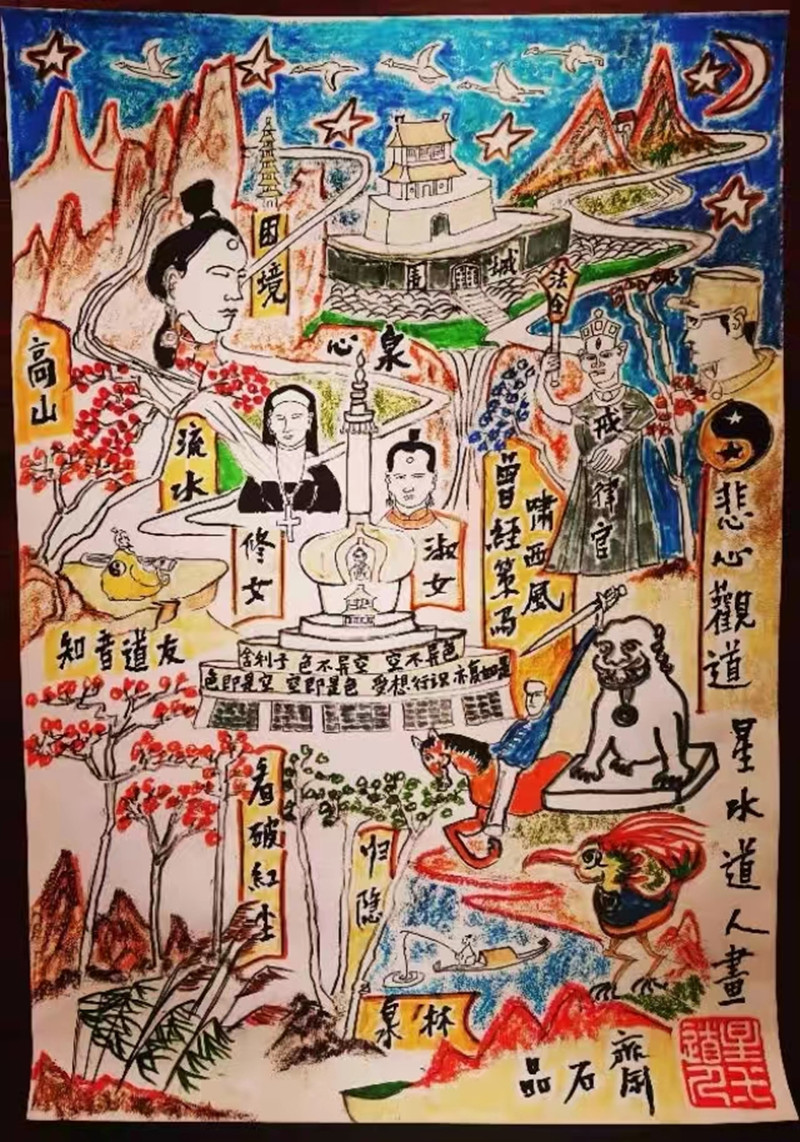 困境
围城
法令
心泉
高山
流水
戒律官
曾經策馬
嘯西風
修女
淑女
知音道友
舍利子 色不异空 空不异色
色即是空 空即是色 受想行识亦复如是
悲心觀道
星水道人畫
看破紅尘
归隐
林泉
品石齋